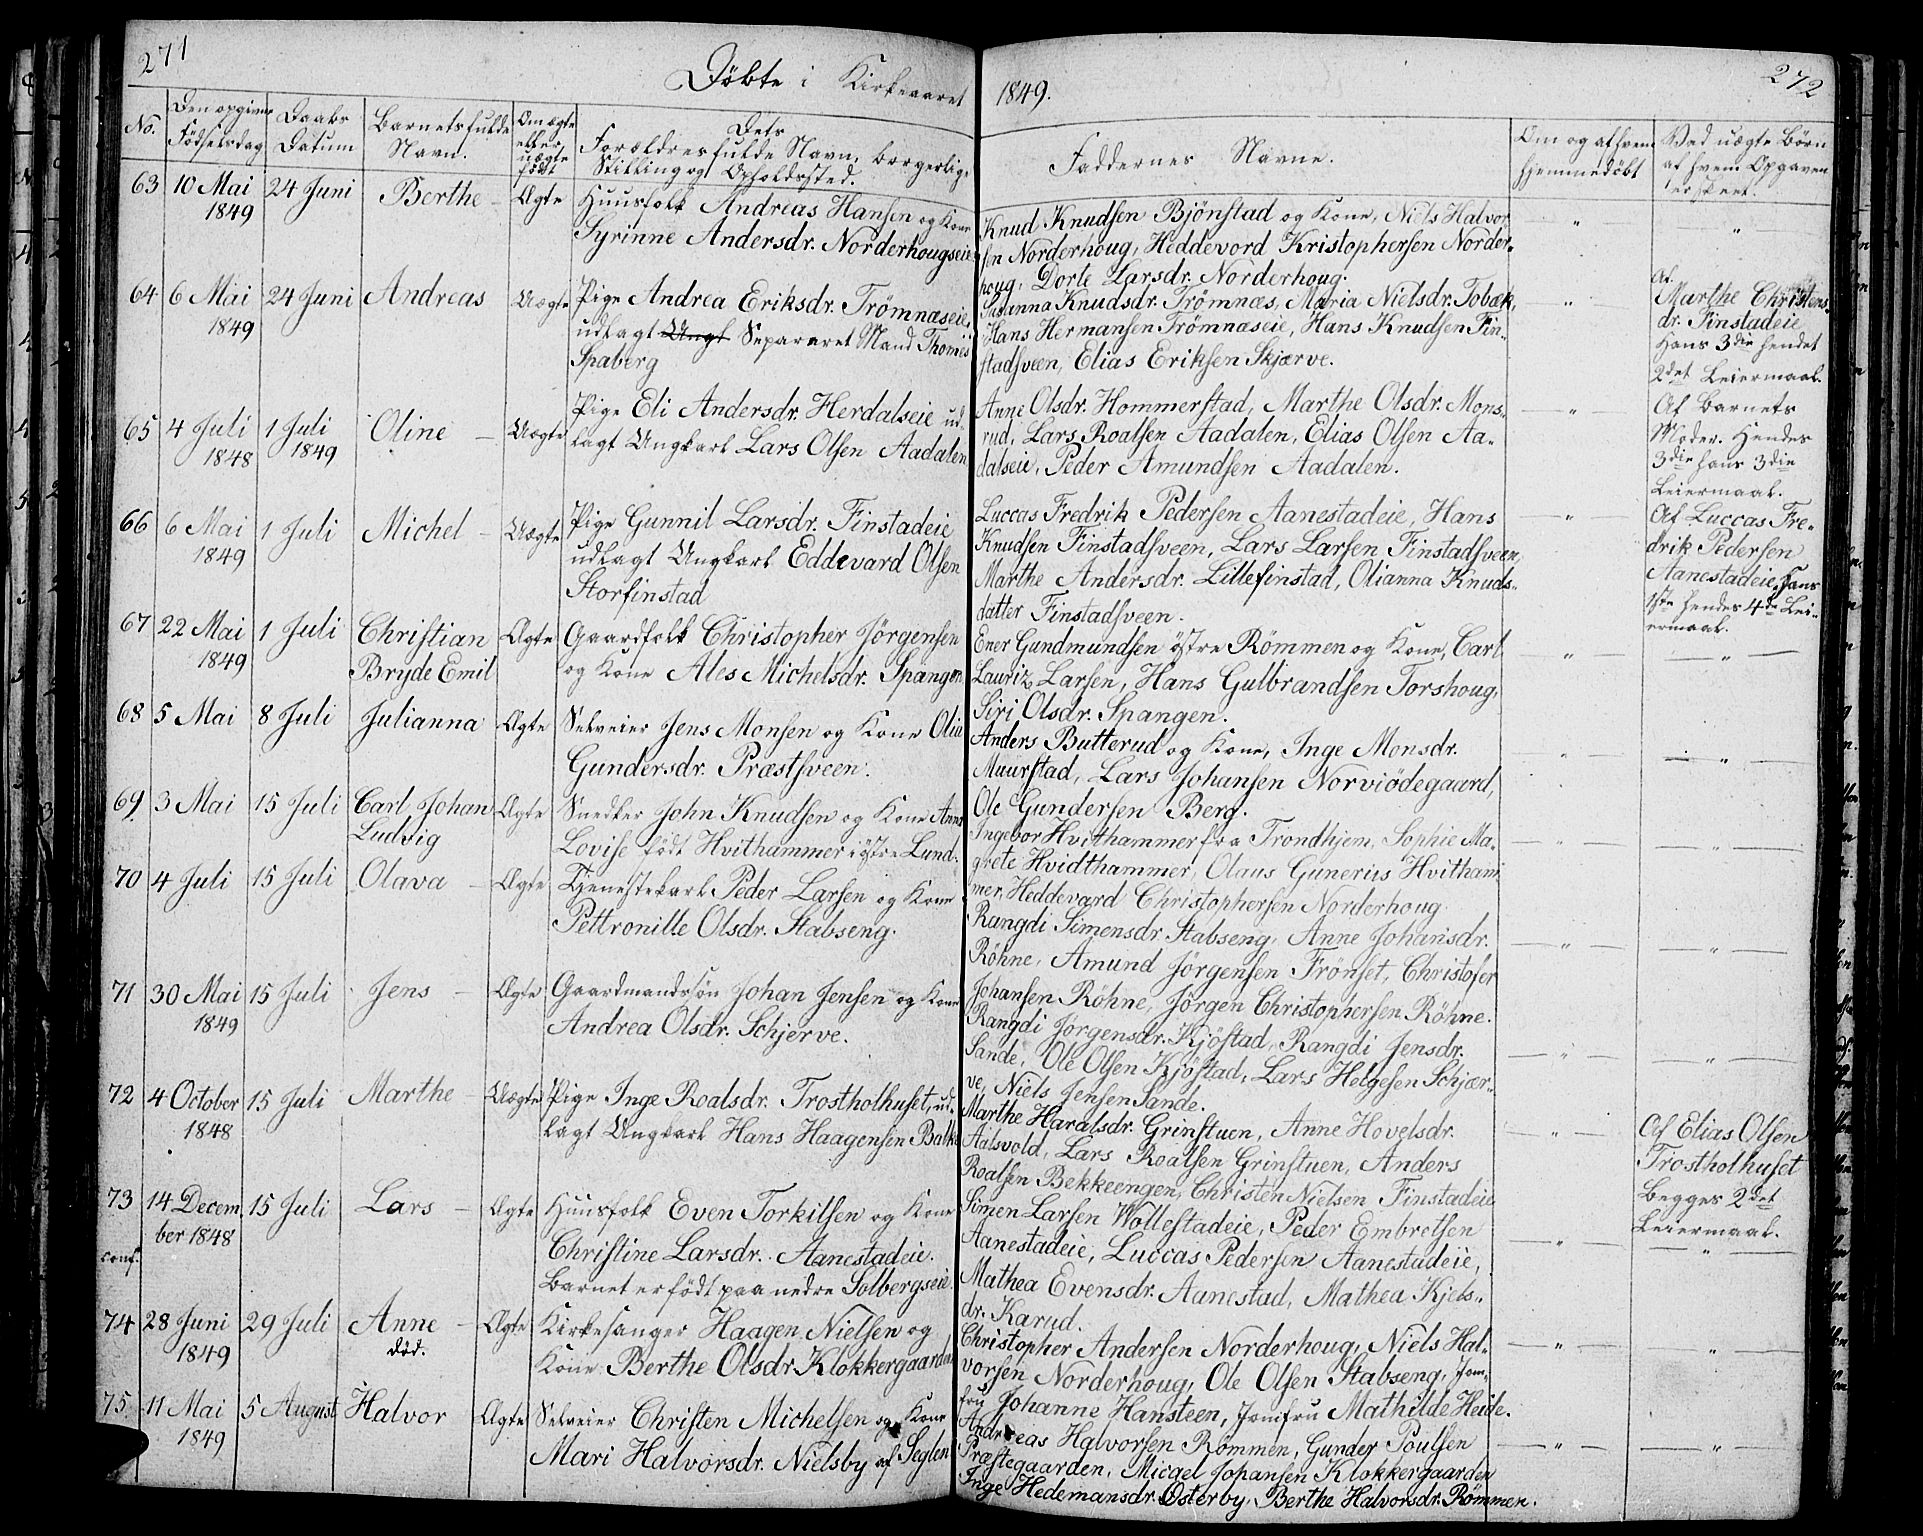 271
Döbte i Kirkeaaret
No.
Den opgivne Födselsdag
Daabs Datum
Barnets fulde Navn.
Om ægte eller uægte födt
Dets Forældres fulde Navn, borgerlige Stilling og Opholdssted.
63 10 Mai 24 Juni Berthe – Ægte Huusfolk Andreas Hansen og Kone
1849 Syrinne Andersdr. Norderhougseie
64 6 Mai 24 Juni Andreas Uægte Pige Andrea Eriksdr. Trömnæseie,
1849 udlagt Ungk Separaret Mand Thomes
Spaberg
65 4 Juli 1 Juli Oline – Uægte Pige Eli Andersdr. Herdalseie ud-
1848 1849 lagt Ungkarl Lars Olsen Aadalen
66 6 Mai 1 Juli Michel – Uægte Pige Gunnil Larsdr. Finstadeie
1849 udlagt Ungkarl Eddevard Olsen
Storfinstad
67 22 Mai 1 Juli Christian Ægte Gaardfolk Christopher Jörgensen
1849 Bryde Emil og Kone Ales Michelsdr. Spangen
68 5 Mai 8 Juli Julianna Ægte Selveier Jens Monsen og Kone Olia
Gundersdr. Præstsveen.
69 3 Mai 15 Juli Carl Johan Ægte Snedker John Knudsen og Kone Anne
Ludvig Lovise födt Hvithammer i östre Lund.
70 4 Juli 15 Juli Olava – Ægte Tjenestekarl Peder Larsen og Kone
Pettronille Olsdr. Stabseng.
71 30 Mai 15 Juli Jens – Ægte Gaardmandssön Johan Jensen og Kone
1849 Andrea Olsdr. Schjerve.
72 4 October 15 Juli Marthe – Uægte Pige Inge Roalsdr. Trostholhuset, ud-
1848 lagt Ungkarl Hans Haagensen Balke
73 14 Decem 15 Juli Lars – Ægte Huusfolk Even Torkilsen og Kone
ber 1848 Christine Larsdr. Aanestadeie.
conf. Barnet er födt paa nedre Solbergseie
74 28 Juni 29 Juli Anne – Ægte Kirkesanger Haagen Nielsen og
1849 död. Kone Berthe Olsdr Klokkergaarden
75 11 Mai 5 August Halvor Ægte Selveier Christen Michelsen og Kone
1849 Mari Halvorsdr. Nielsby af Seglen
272
1849.
Faddernes Navne.
Om og af hvem hjemmedöbt
Ved uægte Börn af hvem Opgaven er skeet.
Knud Knudsen Bjönstad og Kone, Niels Halvor
sen Norderhoug, Heddevord Kristophersen Norder-
houg, Dorte Larsdr. Norderhoug.
Susanna Knudsdr. Trömnæs, Maria Nielsdr. Tobæk,
Hans Hermansen Trömnæseie, Hans Knudsen Fin-
stadsveen, Elias Eriksen Skjærve.
Af
Marthe Christens
dr. Finstadeie
Hans 3die hendes
2det Leiermaal.
Anne Olsdr. Hommerstad, Marthe Olsdr. Mons-
rud, Lars Roalsen Aadalen, Elias Olsen Aa-
dalseie, Peder Amundsen Aadalen.
Af Barnets
Moder. Hendes
3die hans 3die
Leiermaal.
Luccas Fredrik Pedersen Aanestadeie, Hans
Knudsen Finstadsveen, Lars Larsen Finstadsveen,
Marthe Andersdr. Lillefinstad, Olianna Knuds-
datter Finstadsveen.
Af Luccas Fre-
drik Pedersen
Aanestadeie, Hans
1ste hendes 4de Lei-
ermaal.
Ener Gundmundsen östre Römmen og Kone, Carl
Lauriz Larsen, Hans Gulbrandsen Torshoug,
Siri Olsdr. Spangen.
Anders Butterud og Kone, Inge Monsdr.
Muurstad, Lars Johansen Norviödegaard,
Ole Gundersen Berg.
Ingebor Hvithammer fra Trondhjem, Sophie Ma-
grete Hvidthammer, Olaus Gunerius Hvitham
mer, Heddevard Christophersen Norderhoug.
Rangdi Simensdr. Stabseng, Anne Johansdr.
Röhne, Amund Jörgensen Frönset, Christofer
Johansen Röhne, Jörgen Christophersen Röhne.
Rangdi Jörgensdr. Kjöstad, Rangdi Jensdr.
Sande, Ole Olsen Kjöstad, Lars Helgesen Schjær-
ve, Niels Jensen Sande.
Marthe Haralsdr. Grinstuen, Anne Hovelsdr.
Aalsvold, Lars Roalsen Grinstuen, Anders
Roalsen Bekkeengen, Christen Nielsen Finstadeie
Af Elias Olsen
Trostholhuset
Begges 2det
Leiermaal.
Simen Larsen Wollestadeie, Peder Embretsen
Aanestadeie, Luccas Pedersen Aanestadeie,
Mathea Evensdr. Aanestad, Mathea Kjels-
dr. Karud.
Christopher Andersen Norderhoug, Niels Hal-
vorsen Norderhoug, Ole Olsen Stabseng, Jom-
fru Johanne Hansteen, Jomfru Mathilde Heide.
Andreas Halvorsen Römmen, Gunder Poulsen
Præstegaarden, Micael Johansen Klokkergaarden
Inge Hedemansdr. Österby, Berthe Halvorsdr. Römmen.